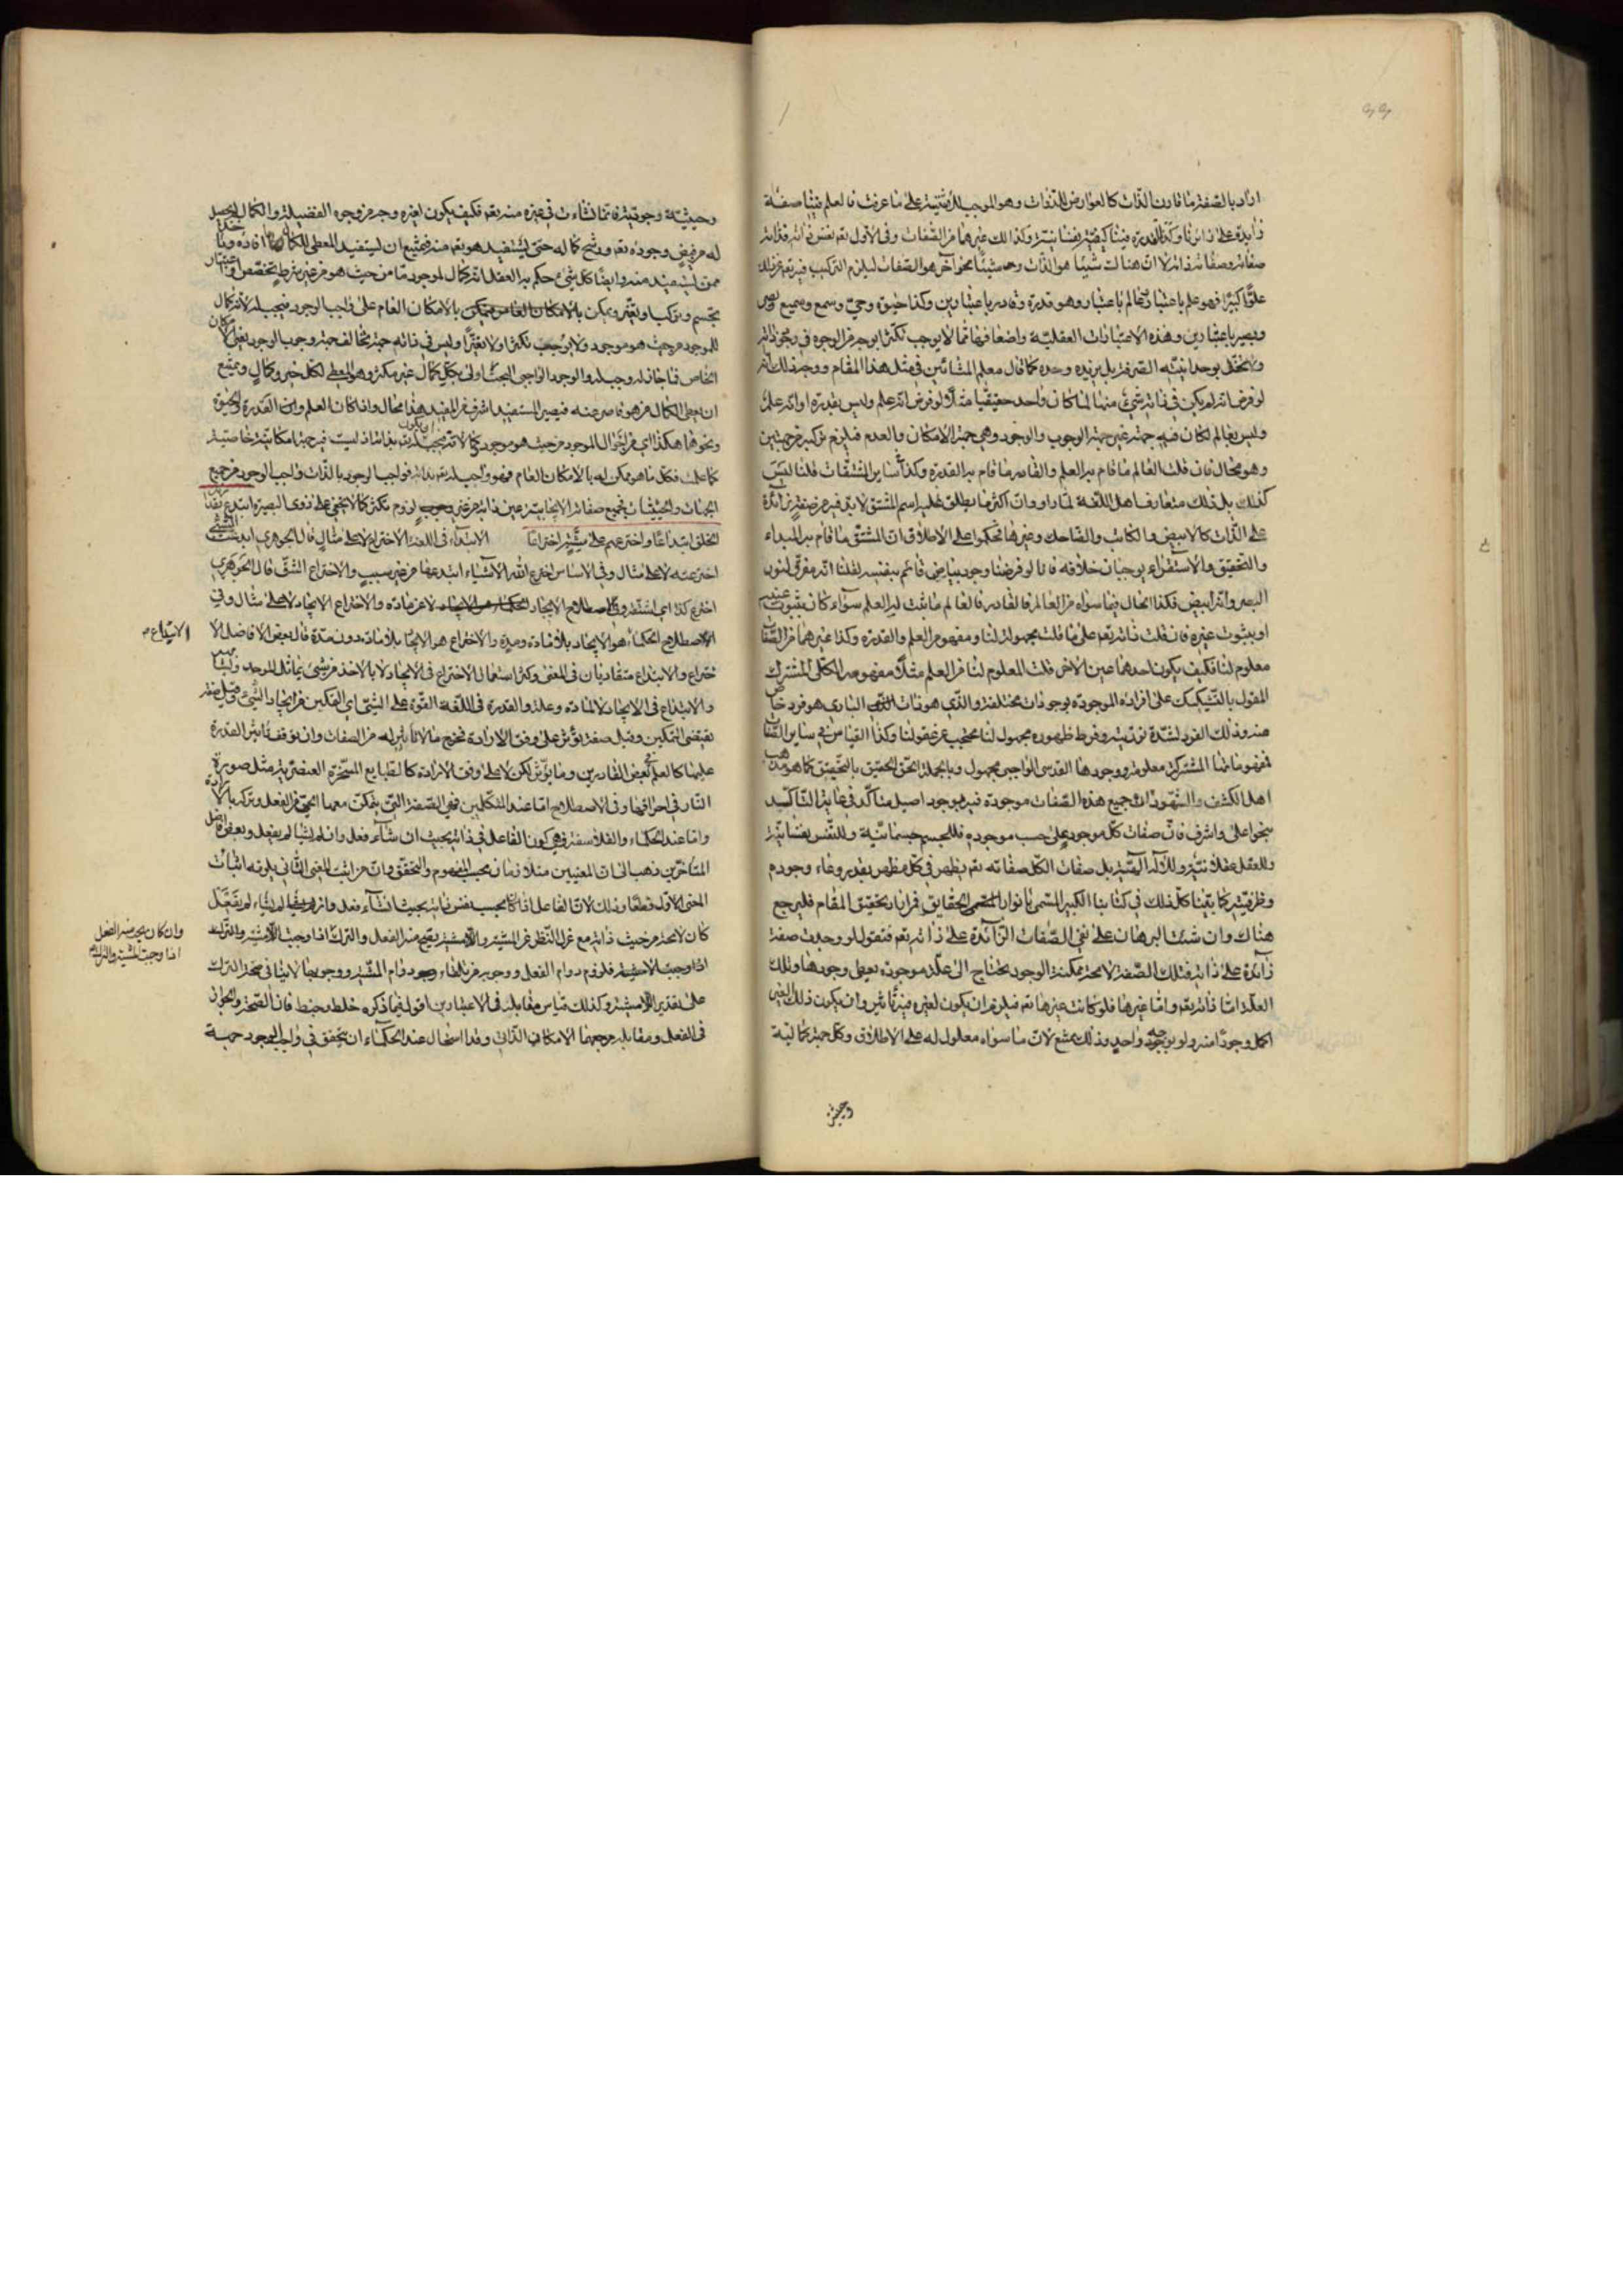 اراد بالصفة ما قارن الذات كالعوارض للذوات وهو الموجب للاثنينية على ما عرفت فالعلم فينا صفة
زايدة على ذاتنا وكذا القدرة فينا كيفية نفسانية وكذلك غيرهما من الصفات وفي الاول تعالى نفس ذاته فذاته
صفاته وصفاته ذاته لا ان هناك شيئا هو الذات وشيئا آخر هو الصفات ليلزم التركيب فيه تعالى عن ذلك
علوا كبيرا فهو علم باعتبار عالم باعتبار وهو قدرة وقادر باعتبارين وكذا حيوة وحي وسمع وسميع وبصر
وبصير باعتبارين وهذه الاعتبارات العقلية واضعافها مما لا يوجب تكثرا بوجه من الوجوه في وجود ذاته
ولا تخل بوحدانيته الصرفة بل يزيده وحدة كما قال معلم المشائين في مثل هذا المقام ووجه ذلك انه
لو فرض انه لم يكن في ذاته شيء منها لما كان واحد حقيقيا مثلا لو فرض انه علم وليس بقدرة او انه علم
وليس بعالم لكان فيه جهة غير جهة الوجوب والوجود وهي جهة الامكان والعدم فيلزم تركبه من جهتين
وهو محال فان قلت العالم ما قام به العلم والقادر ما قام به القدرة وكذا ساير المشتقات قلنا ليس
كذلك بل ذلك متعارف اهل اللغة لما راوا ان اكثر ما يطلق عليه اسم المشتق لا بد فيه من صفة زائدة
على الذات كالابيض والكاتب والضاحك وغيرها فحكموا على الاطلاق ان المشتق ما قام به المبداء
والتحقيق والاستقراء يوجبان خلافه فانا لو فرضنا وجود بياض قائم بنفسه لقلنا انه مفرق للون
البصر وانه ابيض فكذا الحال فيما سواه من العالم والقادر فالعالم ما ثبت له العلم سواء كان بثبوت عينه
او بثبوت غيره فان قلت ذاته تعالى على ما قلت مجهولة لنا ومفهوم العلم والقدرة وكذا غيرهما من الصفات
معلوم لنا فكيف يكون احدهما عين الاخر قلت المعلوم لنا من العلم مثلا مفهومه الكلي المشترك
المقول بالتشكيك على افراده الموجودة بوجودات مختلفة والذي هو ذات الباري هو فرد خاص
منه وذلك الفرد لشدة نوريته وفرط ظهوره مجهول لنا محتجب عن عقولنا وكذا القياس في ساير الصفات
فمفهوماتها المشتركة معلومة ووجودها القدسي الواجبي مجهول وبالجملة الحق الحقيق بالتحقيق كما هو مذهب
اهل الكشف والشهود ان جميع هذه الصفات موجودة فيه بوجود اصيل متاكد في غاية التاكيد
بنحو اعلى واشرف فان صفات كل موجود على حسب موجوده فللجسم جسمانية وللنفس نفسانية
وللعقل عقلانية وللاله الهية بل صفات الكل صفاته تعالى يظهر في كل مظهر بقدر وعاء وجوده
وظرفيته كما بينا كل ذلك في كتابنا الكبير المسمى بانوار الحقايق فمن اراد تحقيق المقام فليرجع
هناك وان شئت البرهان على نفي الصفات الزائدة على ذاته تعالى فنقول لو وجدت صفة
زائدة على ذاته فتلك الصفة لا محة ممكنة الوجود يحتاج الى علة موجودة يعطي وجودها وتلك
العلة اما ذاته تعالى واما غيرها فلو كانت غيرها تعالى فيلزم ان يكون لغيره فيه تاثير وان يكون ذلك الغير
اكمل وجودا منه ولو بوجه واحد وذلك يمتنع لان ما سواه معلول له على الاطلاق وكل جهة كمالية
وحيثية
وحيثية وجودية فانما نشاءت في غيره منه تعالى فكيف يكون لغيره وجه من وجوه الفضيلة والكمال لم يحصل
له من فيض وجوده تعالى ورشح كماله حتى يستفيد هو تعالى منه فيمتنع ان يستفيد المعطي للكمال
ممن يستفيد منه وايضا كل شيء حكم به العقل انه كمال لموجود ما من حيث هو من غير شرط تخصص واعتبار
تجسم وتركب وتغير ويمكن بالامكان العام على واجب الوجود فيجب له لانه كمال
للموجود من حيث هو موجود ولا يوجب تكثرا ولا تغيرا وليس في ذاته جهة تخالف جهة وجوب الوجود يعني الامكان
الخاص فاذا جاز له وجب له والوجود الواجبي البحت اولى بكل كمال غير مكثر وهو المعطي لكل خير وكمال ويمتنع
ان يعطي الكمال من هو قاصر عنه فيصير المستفيد اشرف من المفيد هذا محال واذا كان العلم والقدرة والحيوة
ونحوها هكذا اي من احوال الموجود من حيث هو موجود
كما علمت فكل ما هو ممكن له بالامكان العام فهو واجب له تعالى بذاته فواجب الوجود بالذات واجب الوجود من جميع
الجهات والحيثيات فجميع صفاته الايجابية عين ذاته من غير لزوم تكثر كما لا يخفى على ذوي البصيرة ابتدع بقدرته
الخلق ابتداعا واخترعهم على مشيته اختراعا الابتداء في اللغة الاختراع لا على مثال قال الجوهري ابدعت الشيء
اخترعته لا على مثال وفي الاساس اخترع الله الاشياء ابتدعها من غير سبب والاختراع الشق قال الجوهري
اخترع كذا اي اشتقه وفي اصطلاح الايجاد لا عن مادة والاختراع الايجاد لا على مثال وفي
الاصطلاح الحكماء هو الايجاد بلا مادة ومدة والاختراع هو الايجاد بلا مادة دون مدة قال بعض الافاضل الا
الابتداع
ختراع والابتداع متقاربان في المعنى وكثر استعمال الاختراع في الايجاد لا بالاخذ من شيء يماثل الموجد ويشابهه
والابتداع في الايجاد لا لمادة وعلة والقدرة في اللغة القوة على الشيء اي التمكن من ايجاد الشيء وقيل صفة
يقتضي التمكين وقيل صفة تؤثر على وفق الارادة فخرج ما لا تاثير له من الصفات وان توقف تاثير القدرة
عليها كالعلم في بعض القادرين وما يؤثر لكن لا على وفق الارادة كالطبايع المسخرة العنصرية مثل صورة
النار في احراقها وفي الاصطلاح اما عند المتكلمين فهي الصفة التي يتمكن معها الحي من الفعل وتركه بالارادة
واما عند الحكماء والفلاسفة فهي كون الفاعل في ذاته بحيث ان شاء فعل وان لم يشا لم يفعل وبعض افاضل
المتأخرين ذهب الى ان المعنيين متلازمان بحسب المفهوم والتحقق وان من اثبت المعنى الثاني يلزمه اثبات
المعنى الاول قطعا وذلك لان الفاعل اذا كان بحسب نفس ذاته بحيث ان شاء فعل وان لم يشاء لم يفعل
كان لا محة من حيث ذاته مع عزل النظر عن المشية واللامشية يصح منه الفعل والترك اذا وجبت اللامشية والترك
وان كان يجب منه الفعل
اذا وجبت المشية والترك
اذا وجبت اللامشية فلزم دوام الفعل ووجوبه من تلقاء دوام المشية ووجوبها لا ينافي صحة الترك
على تقدير اللامشية وكذلك قياس مقابله في الاعتبارين اقول فيما ذكره خلط وخبط فان الصحة والجواز
في الفعل ومقابله مرجعهما الامكان الذاتي وقد استحال عند الحكماء ان يتحقق في واجب الوجود جهة